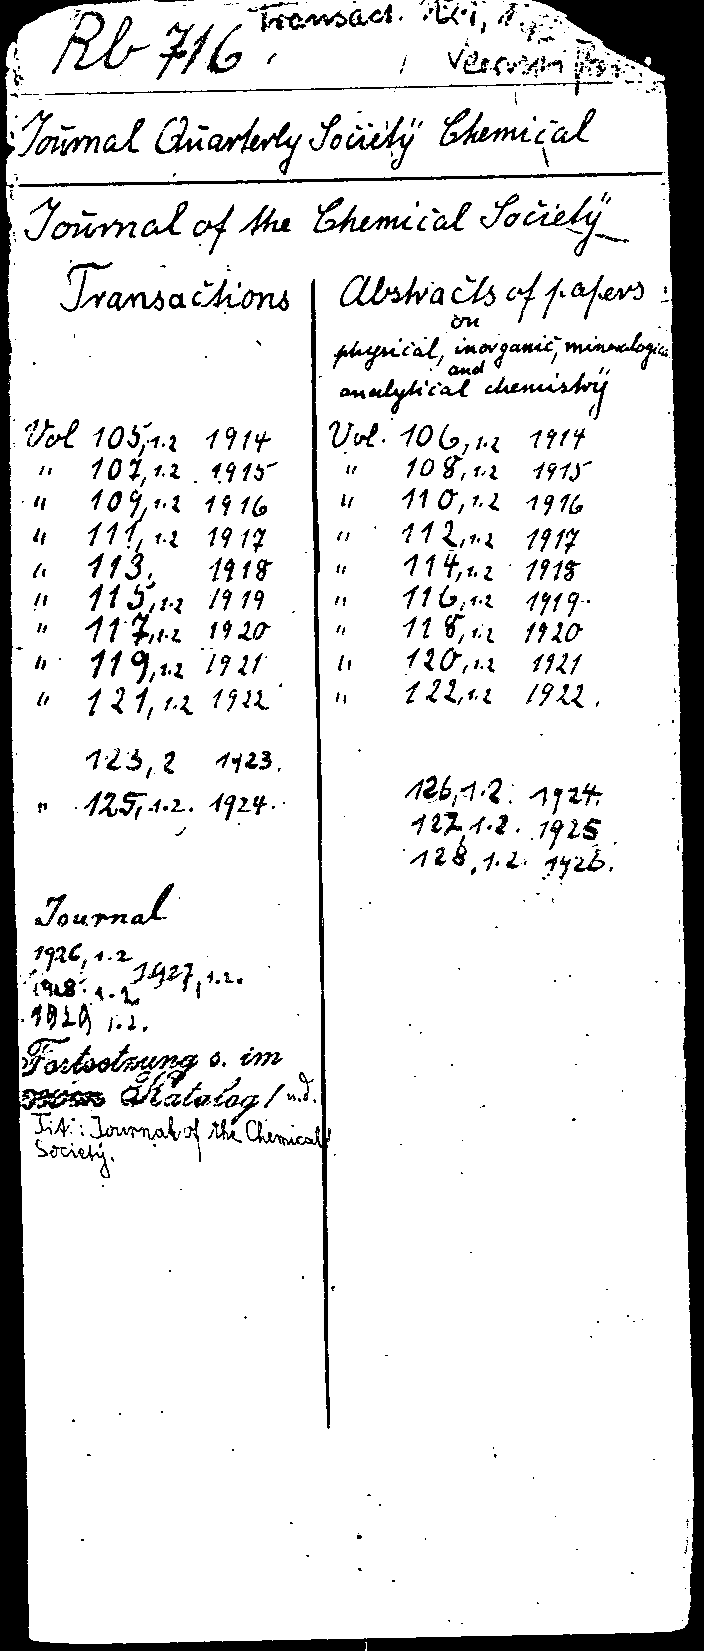 Transact.
Rb 716
Journal Quarterly Society Chemical
Journal of the Chemical Society
Transactions
Vol 105, 1.2 1914
" 107, 1.2 1915
" 109, 1.2 1916
" 111, 1.2 1917
" 113, 1918
" 115, 1.2 1919
" 117, 1.2 1920
" 119, 1.2 1921
" 121, 1.2 1922
123, 2 1923.
" 125, 1.2. 1924.
Journal
1926, 1.2
1927, 1.2.
1928. 1.2.
1929 1.2.
Fortsetzung s. im
Katalog! u.d.
Tit.: Journal of the Chemical
Society.
Abstracts of papers
on
physical, inorganic, mineralogica
and
analytical chemistry
Vol. 106, 1.2 1914
" 108, 1.2 1915
" 110, 1.2 1916
" 112, 1.2 1917
" 114, 1.2 1918
" 116, 1.2 1919
" 118, 1.2 1920
" 120, 1.2 1921
" 122, 1.2 1922.
126, 1.2. 1924.
127, 1.2. 1925
128, 1.2. 1926.